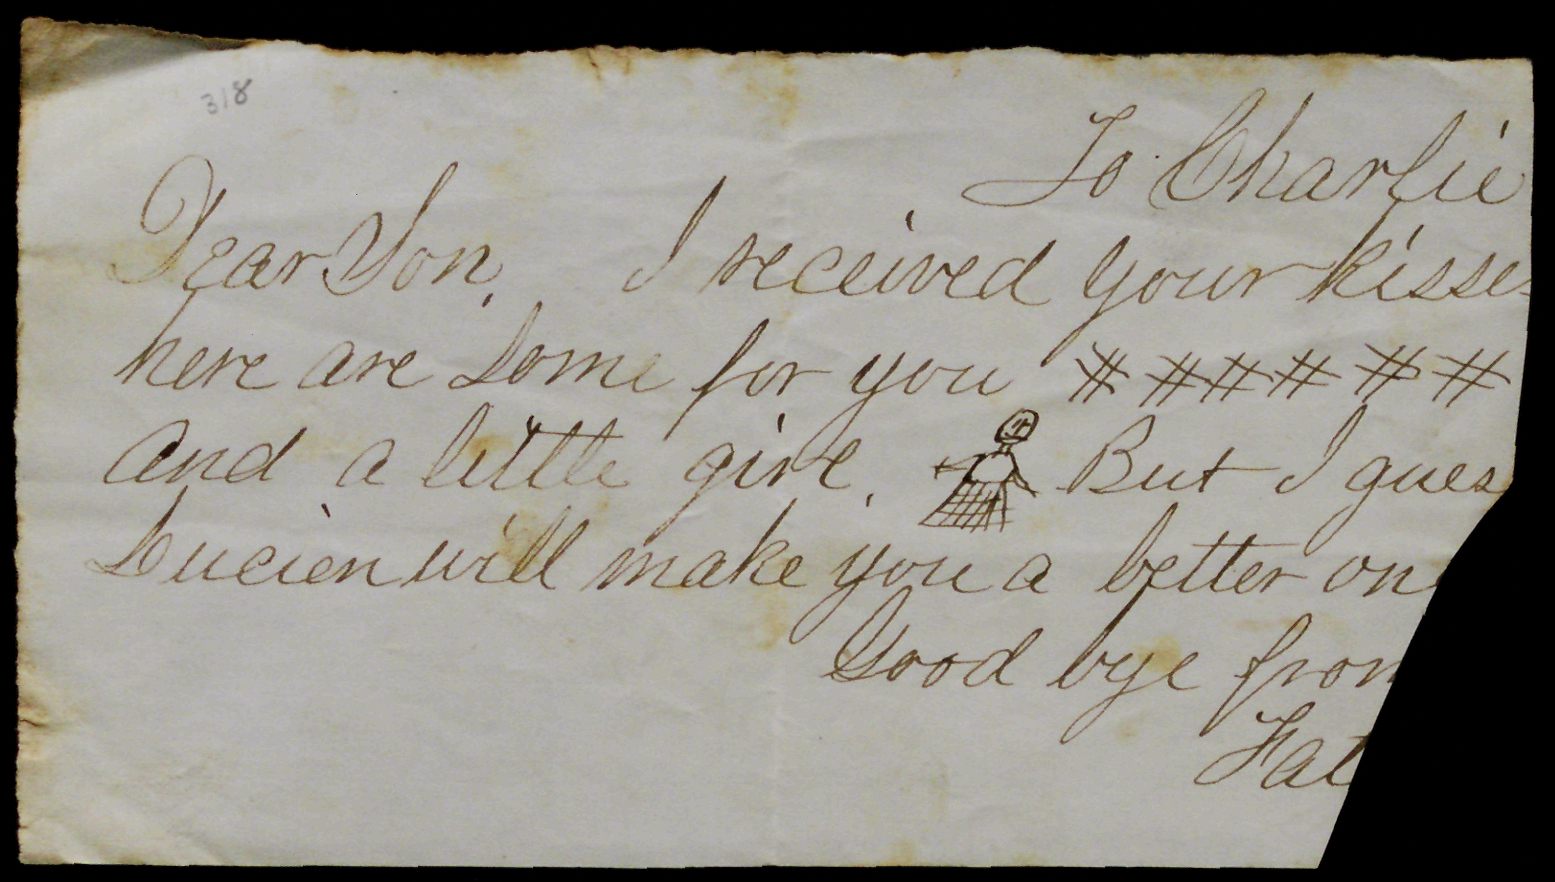 318
To Charlie
Dear Son, I received your kisse
here are some for you # # # # # #
and a little girl. But I gues
Lucien will make you a better on
Good bye from
Fat